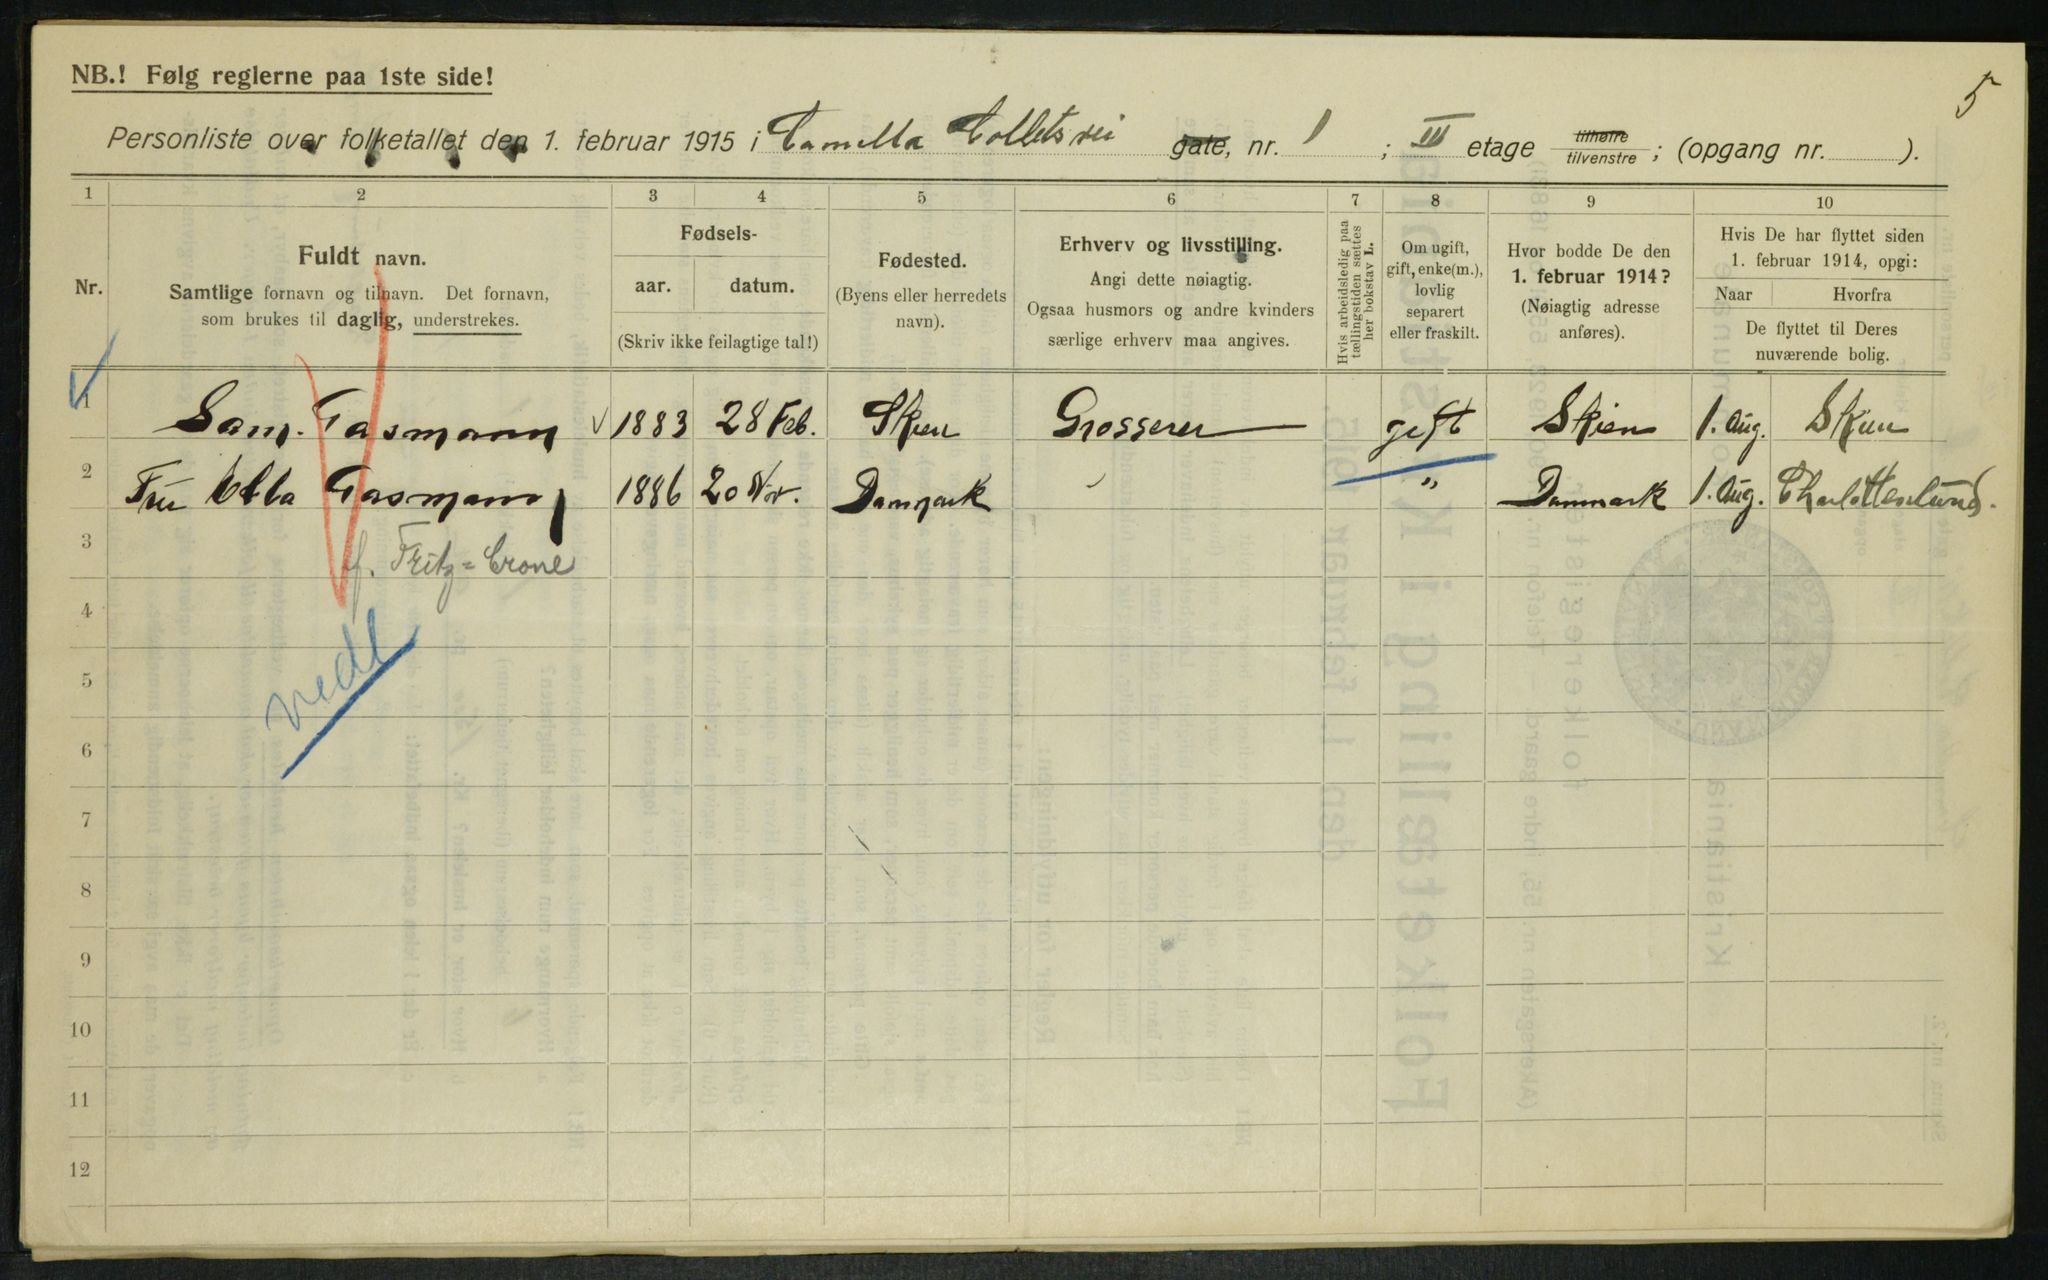 5
NB.! Følg reglerne paa 1ste side!
Personliste over folketallet den 1. februar 1915 i Camilla Colletsvei gate, nr. 1 ; III etage tilhøire tilvenstre ; (opgang nr. ).
1 2 3 4 5 6 7 8 9 10
Nr.
Fuldt navn.
Samtlige fornavn og tilnavn. Det fornavn,
som brukes til daglig, understrekes.
Fødsels-
aar. datum.
(Skriv ikke feilagtige tal!)
Fødested.
(Byens eller herredets
navn).
Erhverv og livsstilling.
Angi dette nøiagtig.
Ogsaa husmors og andre kvinders
særlige erhverv maa angives.
Hvis arbeidsledig paa
tællingstiden sættes
her bokstav L.
Om ugift,
gift, enke(m.),
lovlig
separert
eller fraskilt.
Hvor bodde De den
1. februar 1914?
(Nøiagtig adresse
anføres).
Hvis De har flyttet siden
1. februar 1914, opgi:
Naar Hvorfra
De flyttet til Deres
nuværende bolig.
1 Sam. Tasmann 1883 28 Feb. Skien Grosserer gift Skien 1. Aug. Skien
2 Fru Ebba Tasmann 1886 20 Nov. Danmark " Danmark 1. Aug. Charlottenlund.
3 f. Fritz=Crone
4
nedl
5
6
7
8
9
10
11
12